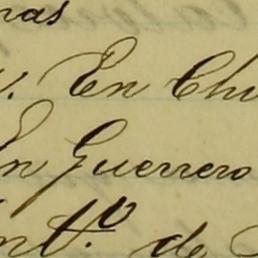 nas
. En Chi
En Guerrero
nt.º de